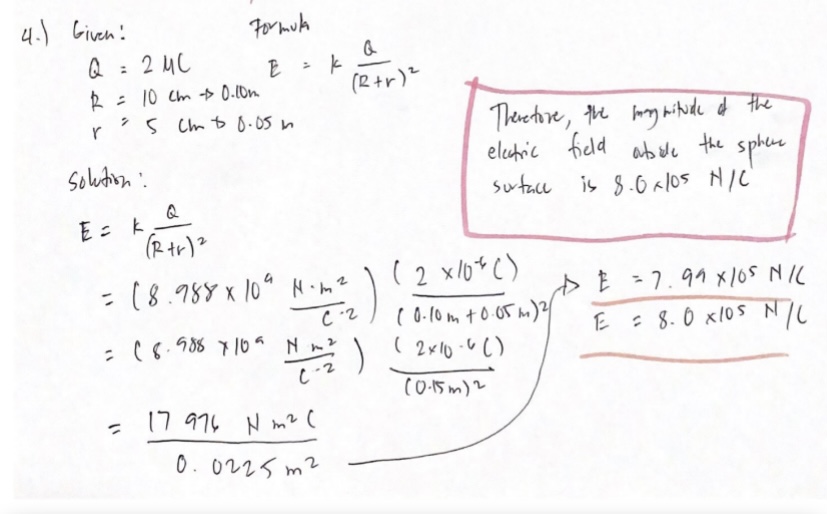 4.) Given:
Formula
Q = 2 μC
E = k Q/(R+r)²
R = 10 cm → 0.10m
r = 5 cm → 0.05 m
Therefore, the magnitude of the
electric field outside the sphere
surface is 8.0 x105 N/C
Solution:
E = k Q/(R+r)²
= (8.988 x 10⁹ N·m²/C-2) (2 x10⁻⁶ C)/(0.10m + 0.05m)²
= (8.988 x 10⁹ N m²/C-2) (2x10-6 C)/(0.15m)2
= 17 976 N m2 C/0.0225 m2
→ E = 7.99 x105 N/C
E = 8.0 x105 N/C